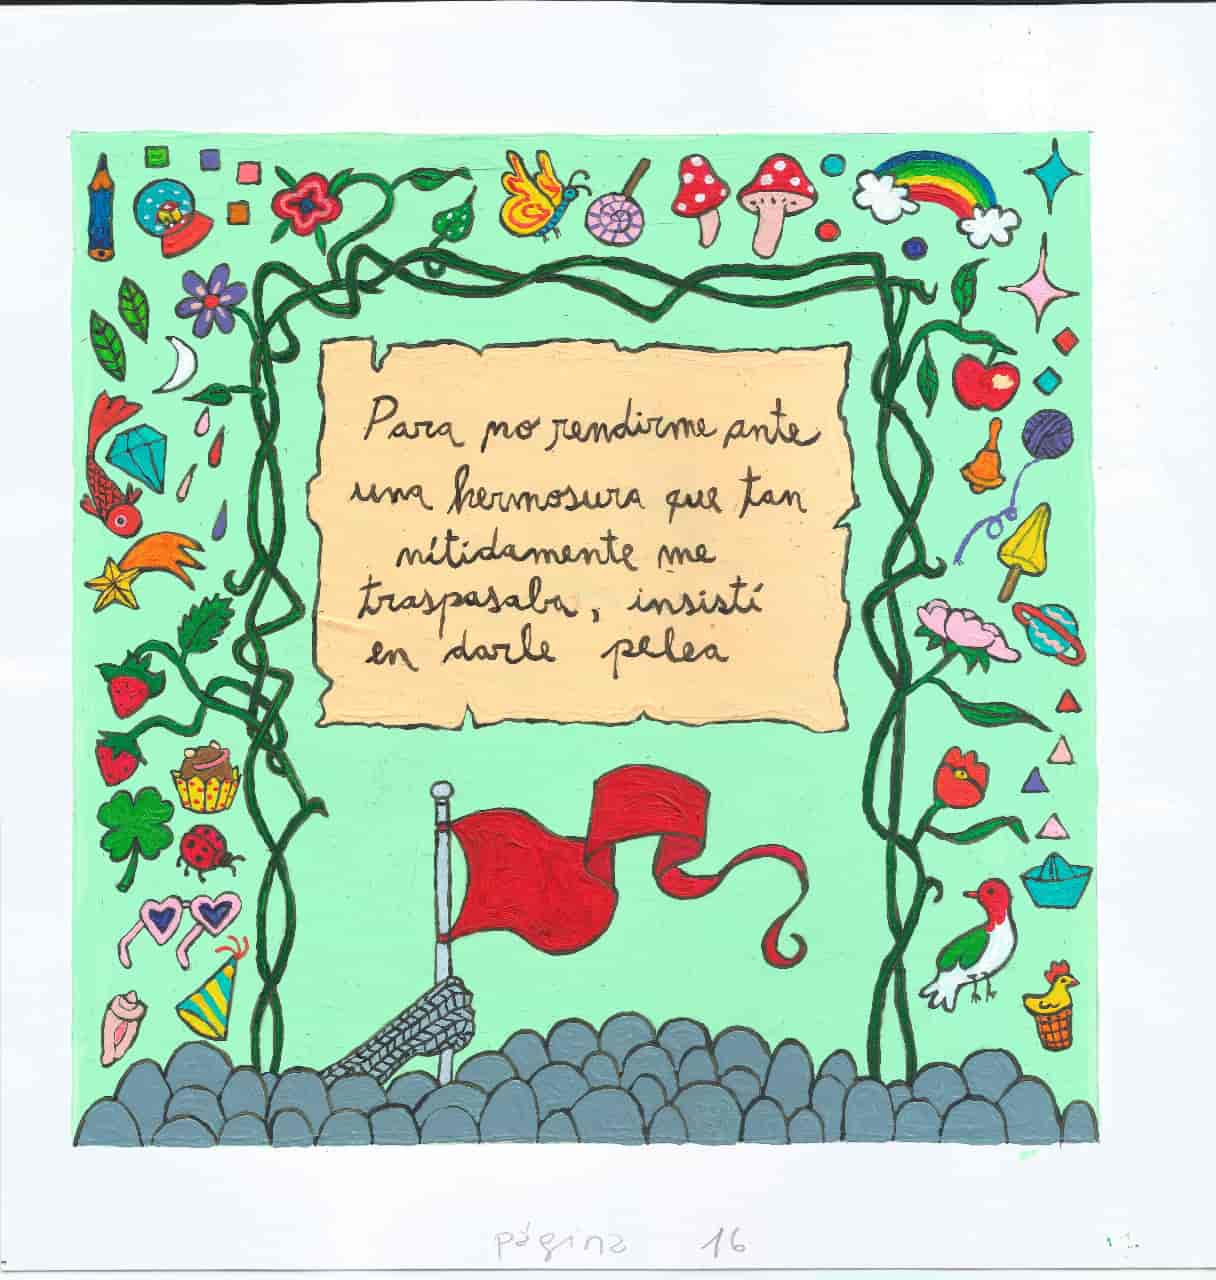 Para no rendirme ante
una hermosura que tan
nítidamente me
traspasaba, insistí
en darle pelea
página 16